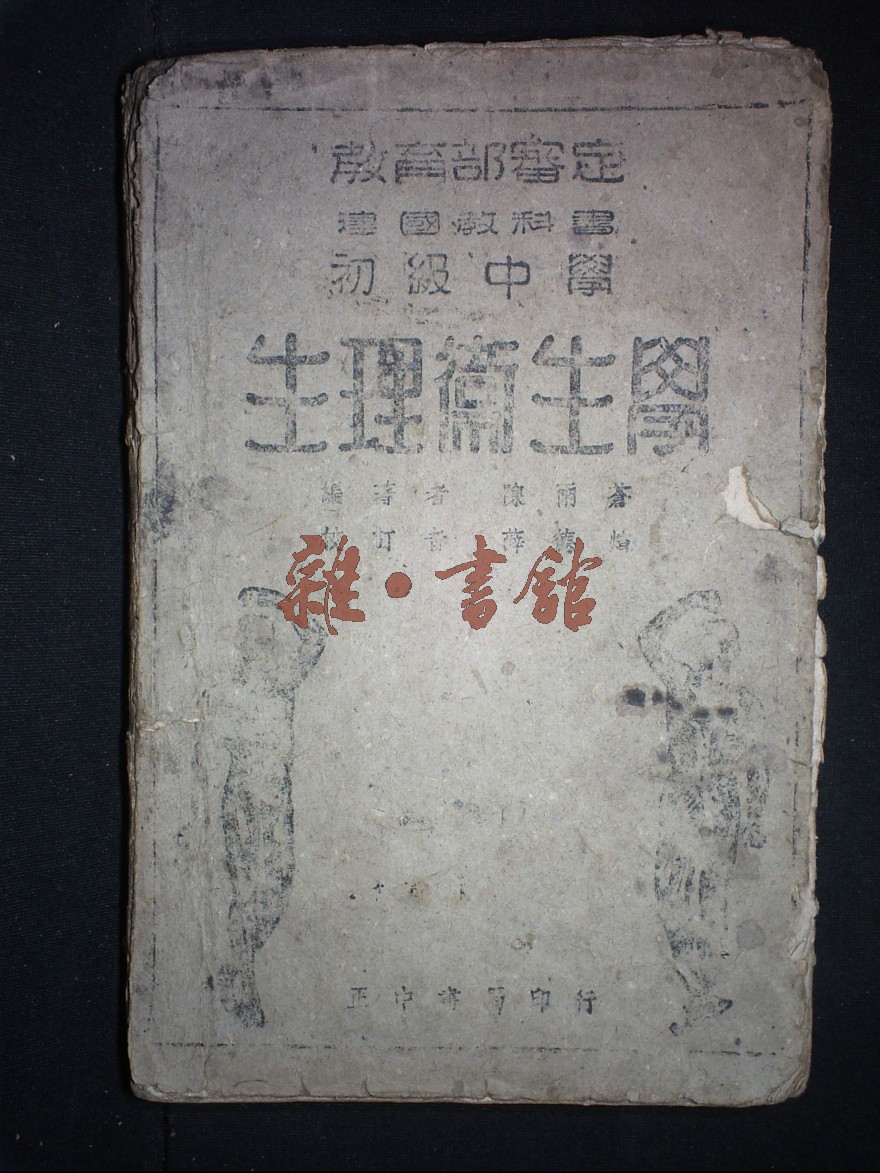 教育部審定
建國教科書
初級中學
生理衛生學
編著者 陳雨蒼
校訂者 薛德焴
雜·書館
正中書局印行